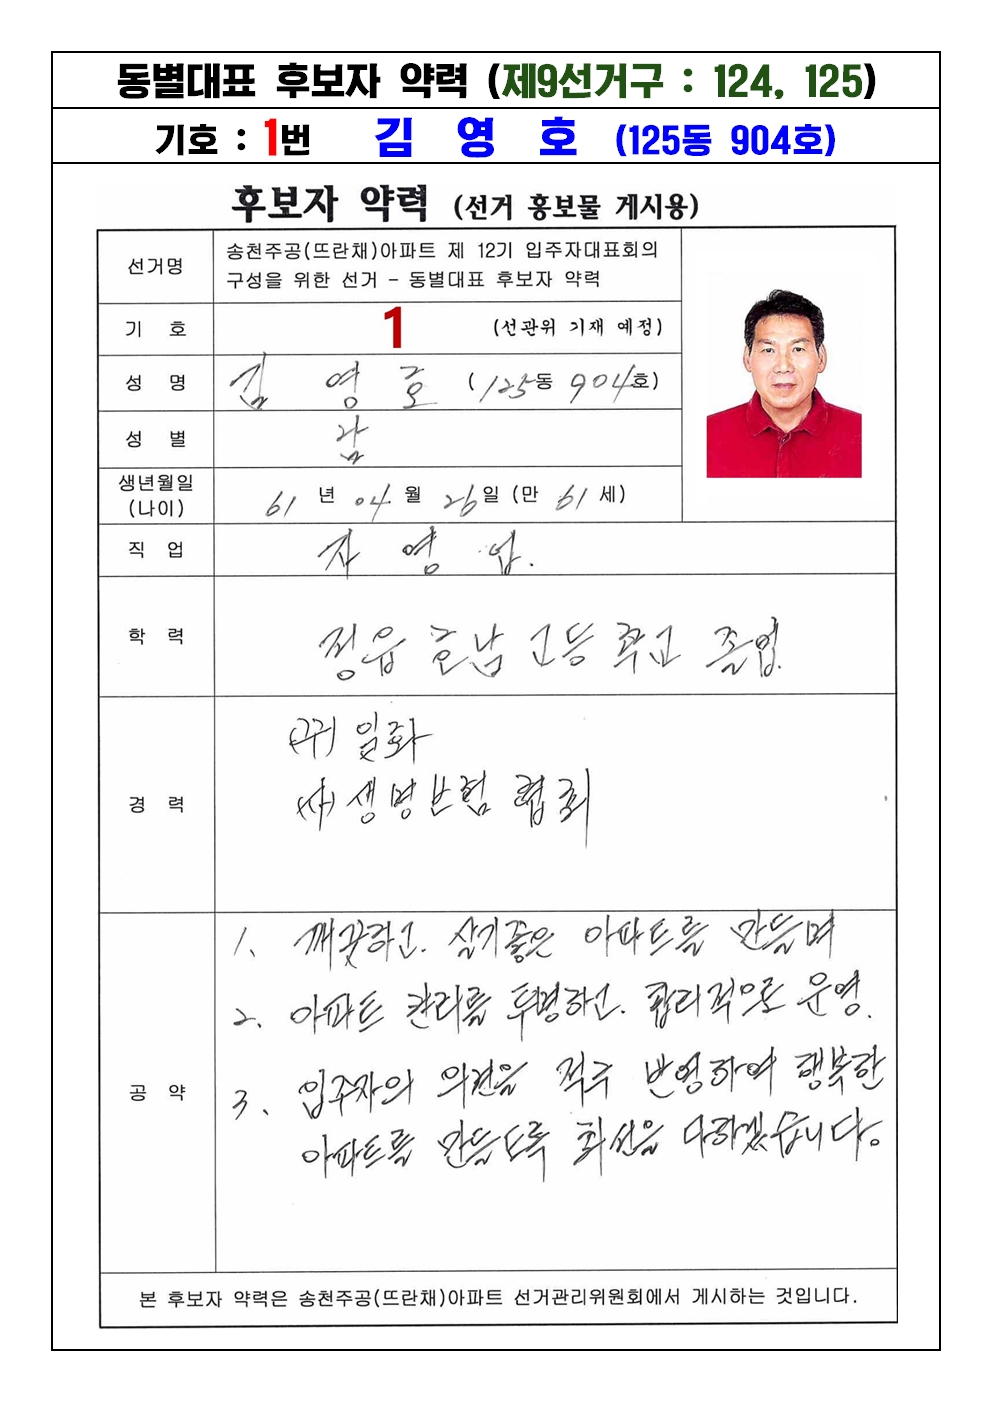 동별대표 후보자 약력 (제9선거구 : 124, 125)
기호 : 1번 김 영 호 (125동 904호)
후보자 약력 (선거 홍보물 게시용)
선거명
송천주공(뜨란채)아파트 제 12기 입주자대표회의
구성을 위한 선거 - 동별대표 후보자 약력
기 호
1 (선관위 기재 예정)
성 명
김 영 호 (125동 904호)
성 별
남
생년월일
(나이)
61 년 04 월 26일 (만 61 세)
직 업
자 영 업.
학 력
정읍 호남 고등 학교 졸업.
경 력
(주) 일화
(사) 생명보험 협회
공 약
1. 깨끗하고. 살기좋은 아파트를 만들며
2. 아파트 관리를 투명하고. 합리적으로 운영.
3. 입주자의 의견을 적극 반영하여 행복한
아파트를 만들도록 최선을 다하겠습니다.
본 후보자 약력은 송천주공(뜨란채)아파트 선거관리위원회에서 게시하는 것입니다.